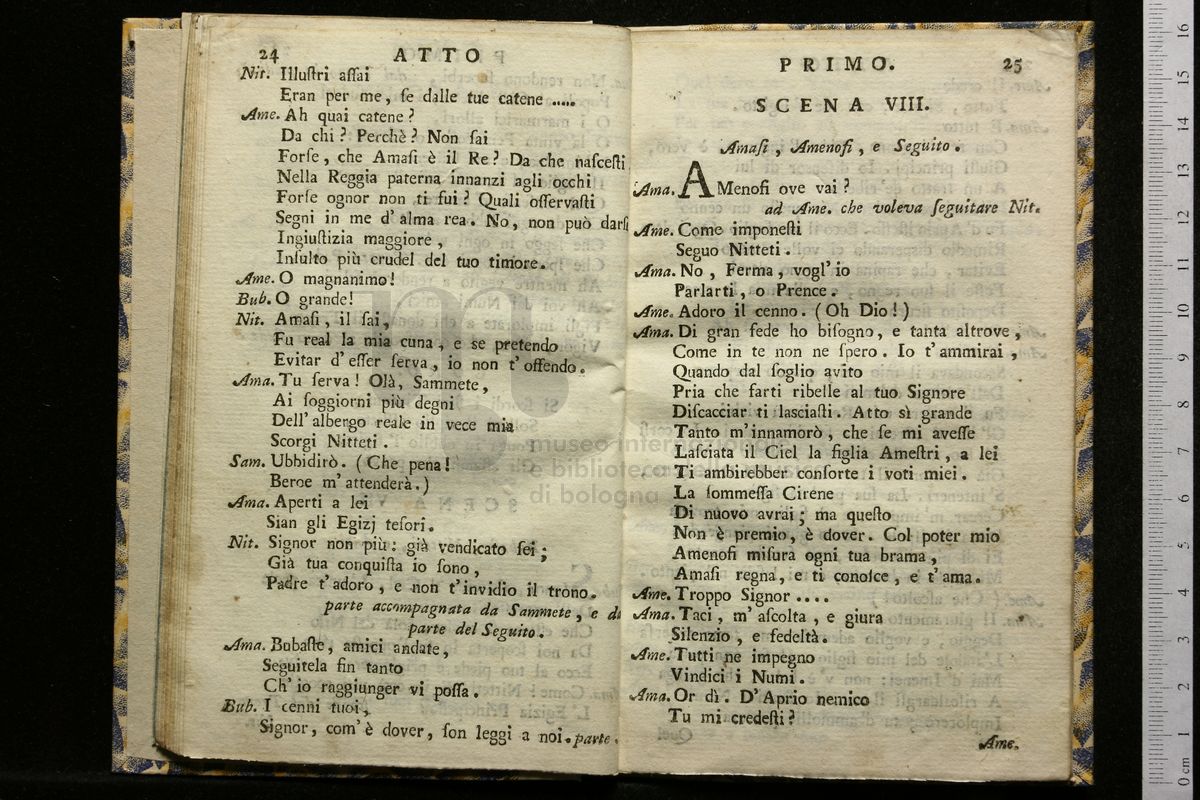 24 ATTO
Nit. Illuſtri aſſai
Eran per me, ſe dalle tue catene .....
Ame. Ah quai catene?
Da chi? Perchè? Non ſai
Forſe, che Amaſi è il Re? Da che naſceſti
Nella Reggia paterna innanzi agli occhi
Forſe ognor non ti fui? Quali oſſervaſti
Segni in me d'alma rea. No, non può darſi
Ingiuſtizia maggiore,
Inſulto più crudel del tuo timore.
Ame. O magnanimo!
Bub. O grande!
Nit. Amaſi, il ſai,
Fu real la mia cuna, e se pretendo
Evitar d'eſſer ſerva, io non t'offendo.
Ama. Tu ſerva! Olà, Sammete,
Ai ſoggiorni più degni
Dell'albergo reale in vece mia
Scorgi Nitteti.
Sam. Ubbidirò. (Che pena!
Beroe m'attenderà.)
Ama. Aperti a lei
Sian gli Egizj teſori.
Nit. Signor non più: già vendicato ſei;
Già tua conquiſta io ſono,
Padre t'adoro, e non t'invidio il trono.
parte accompagnata da Sammete, e da
parte del Seguito.
Ama. Bubaſte, amici andate,
Seguitela fin tanto
Ch'io raggiunger vi poſſa.
Bub. I cenni tuoi,
Signor, com'è dover, ſon leggi a noi. parte.
PRIMO. 25
SCENA VIII.
Amaſi, Amenofi, e Seguito.
Ama. AMenofi ove vai?
ad Ame. che voleva ſeguitare Nit.
Ame. Come imponeſti
Seguo Nitteti.
Ama. No, Ferma, vogl'io
Parlarti, o Prence.
Ame. Adoro il cenno. (Oh Dio!)
Ama. Di gran fede ho biſogno, e tanta altrove,
Come in te non ne ſpero. Io t'ammirai,
Quando dal ſoglio avito
Pria che farti ribelle al tuo Signore
Diſcacciar ti laſciaſti. Atto sì grande
Tanto m'innamorò, che ſe mi aveſſe
Laſciata il Ciel la figlia Ameſtri, a lei
Ti ambirebber conſorte i voti miei.
La ſommeſſa Cirene
Di nuovo avrai; ma queſto
Non è premio, è dover. Col poter mio
Amenofi miſura ogni tua brama,
Amaſi regna, e ti conoſce, e t'ama.
Ame. Troppo Signor ....
Ama. Taci, m'aſcolta, e giura
Silenzio, e fedeltà.
Ame. Tutti ne impegno
Vindici i Numi.
Ama. Or dì. D'Aprio nemico
Tu mi credeſti?
Ame.
museo internazionale
e biblioteca
di bologna